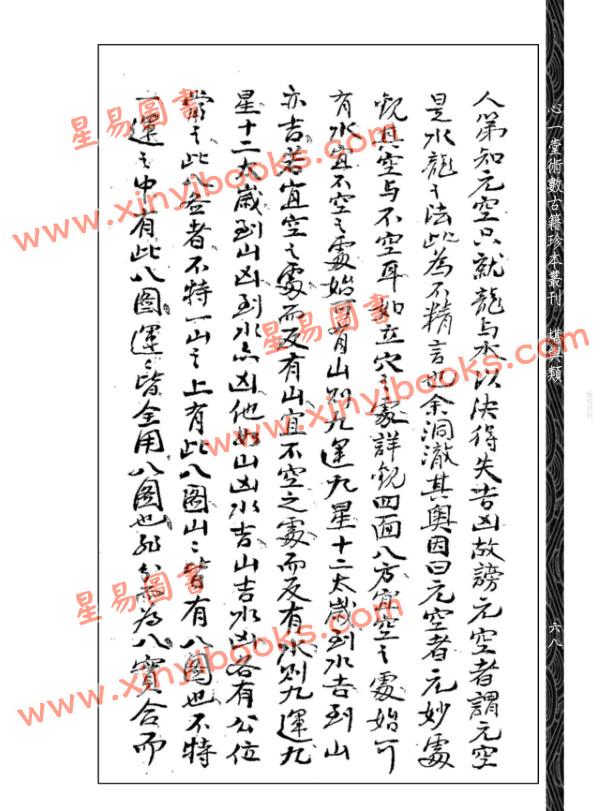 心一堂術數古籍珍本叢刊 堪輿類
六八
人第知元空只就龍与水以決得失吉凶故謗元空者謂元空
是水龍之法此為不精言也余洞澈其奧因曰元空者元妙處
觀其空与不空耳如立穴之處詳觀四面八方宜空之處始可
有水宜不空之處始可有山則九運九星十二太歲到水吉到山
亦吉若宜空之處而反有山宜不空之處而反有水則九運九
星十二太歲到山凶到水亦凶他如山凶水吉山吉水凶各有公位
不特一山之上有此八圖山之皆有八圖也不特
一運之中有此八圖運之皆全用八圖也為八實合而
星易圖書
www.xinyibooks.com
星易圖書
www.xinyibooks.com
星易圖書
www.xinyibooks.com